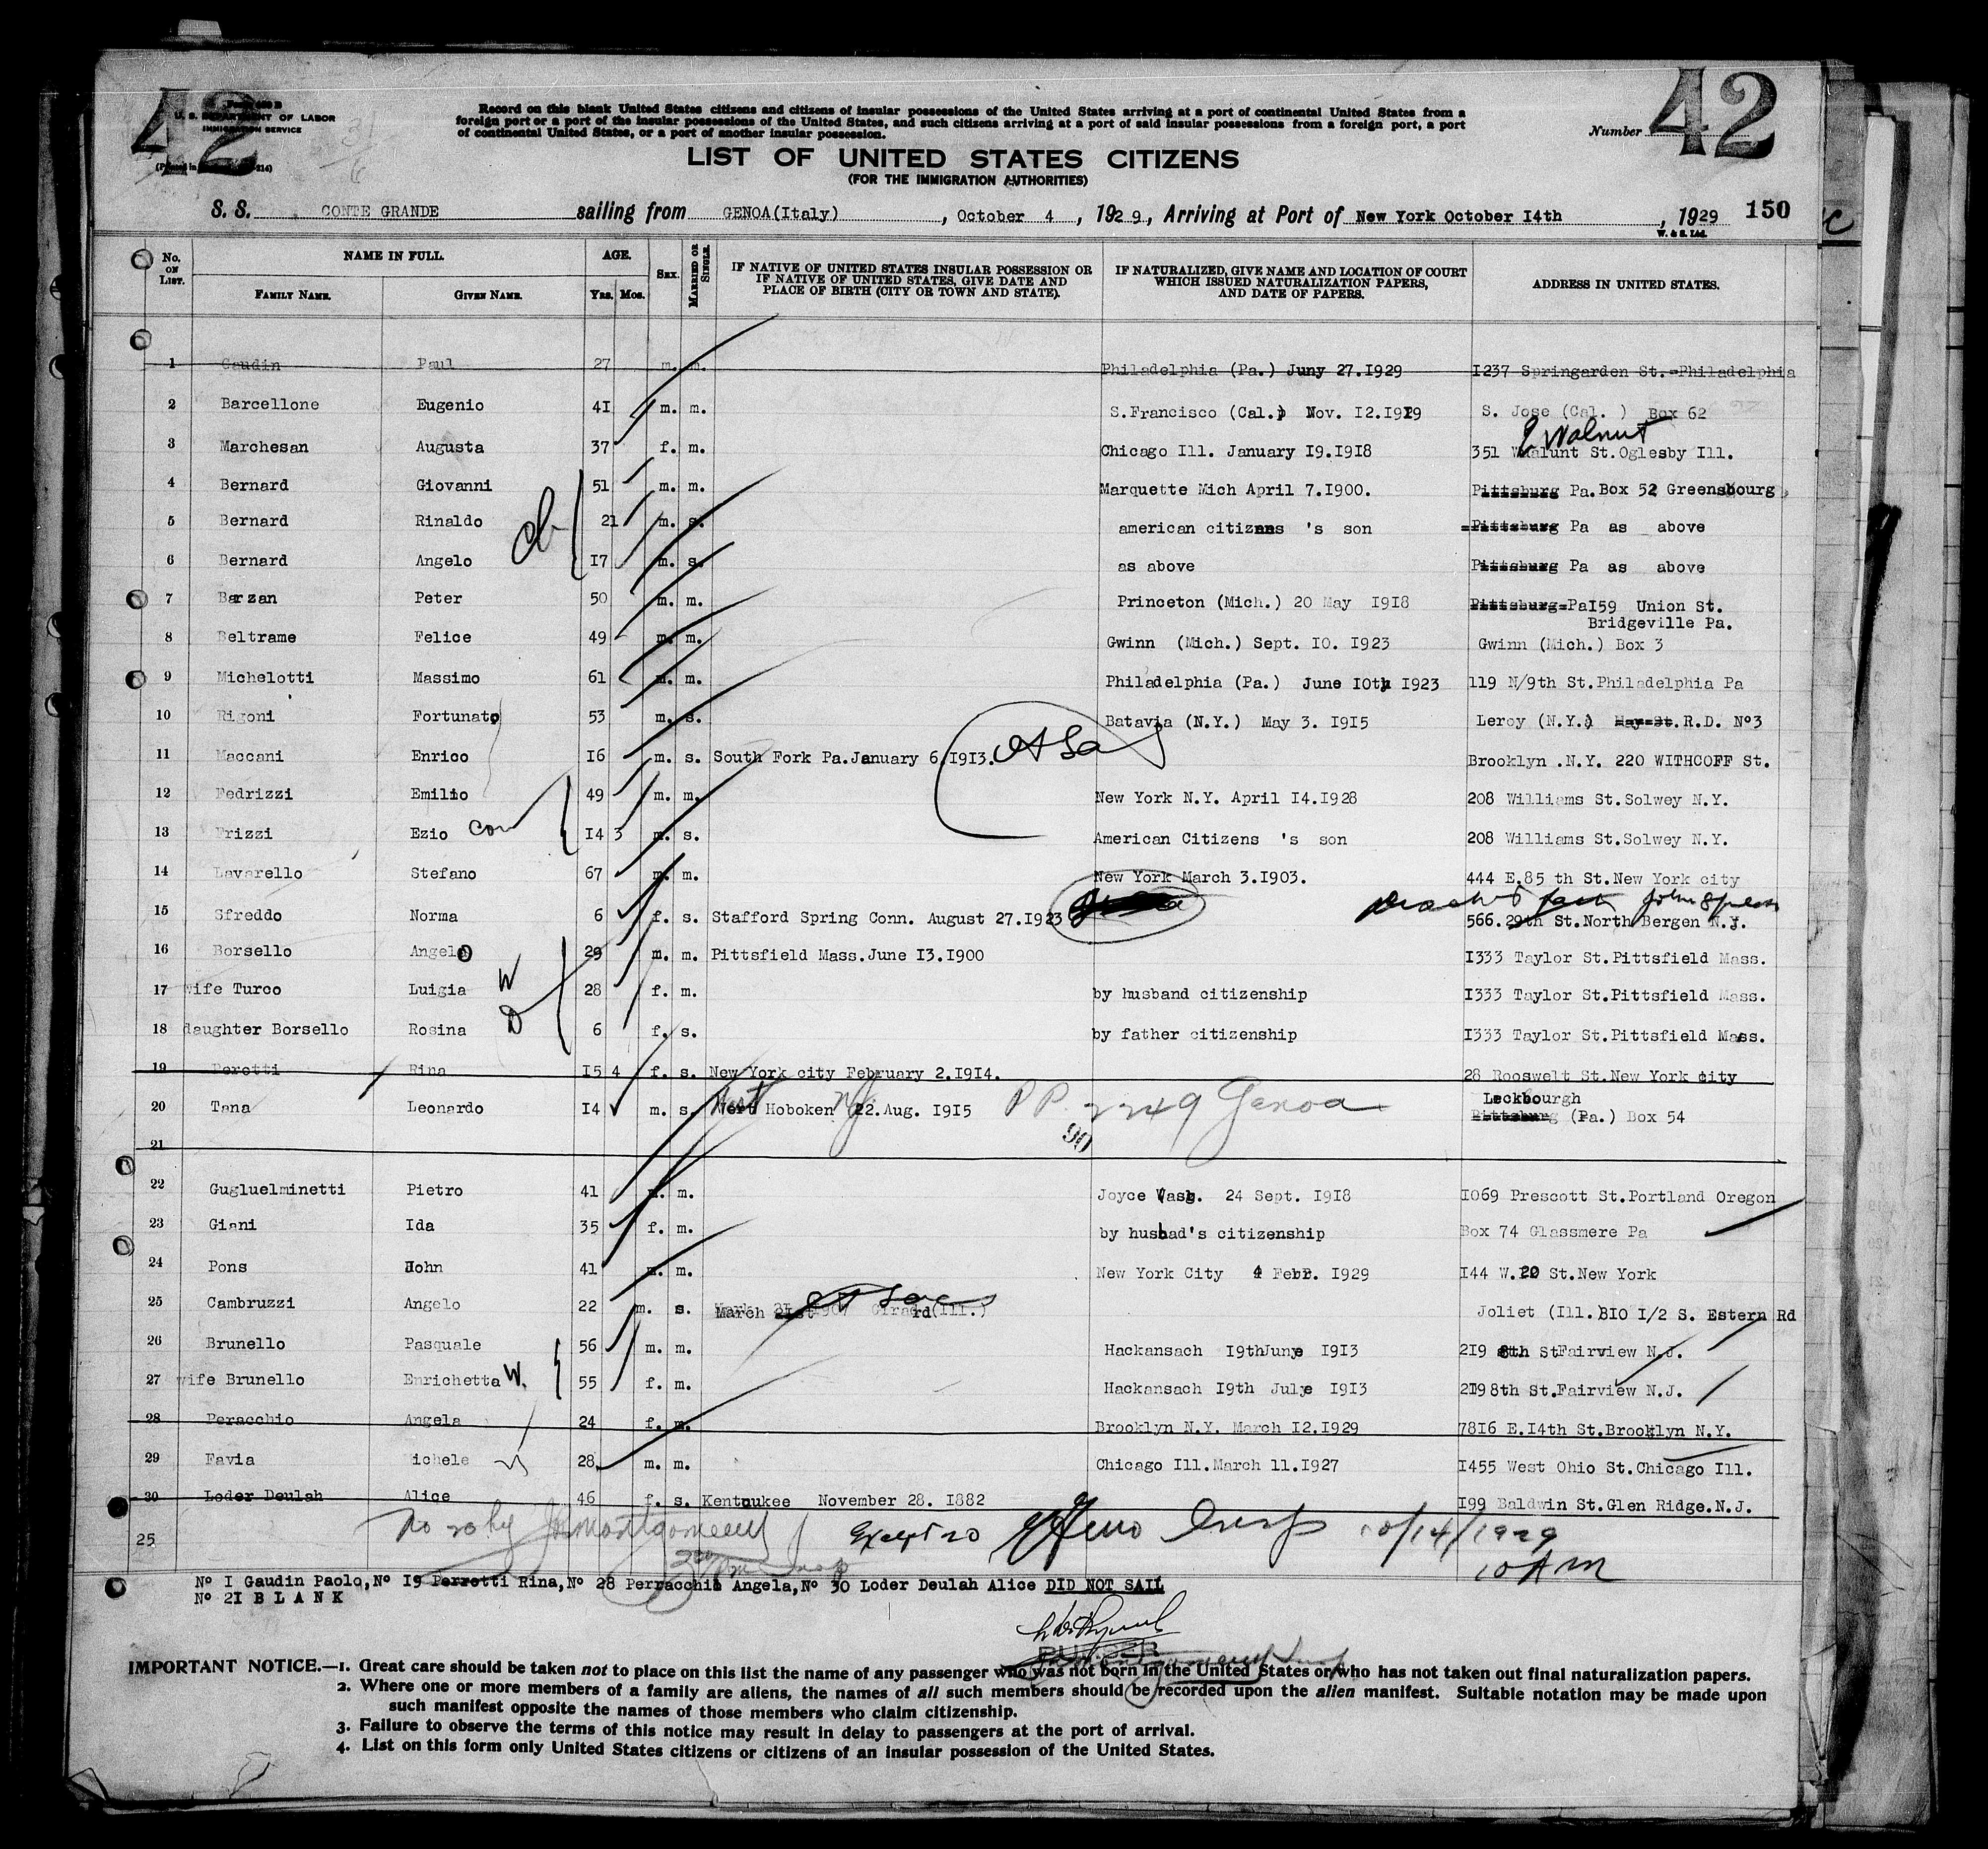 42
42
U. S. DEPARTMENT OF LABOR
IMMIGRATION SERVICE
Record on this blank United States citizens and citizens of insular possessions of the United States arriving at a port of continental United States from a
foreign port or a port of the insular possessions of the United States, and such citizens arriving at a port of said insular possessions from a foreign port, a port
of continental United States, or a port of another insular possession.
Number
LIST OF UNITED STATES CITIZENS
(FOR THE IMMIGRATION AUTHORITIES)
S. S. CONTE GRANDE sailing from GENOA(Italy), October 4, 1929., Arriving at Port of New York October I4th, 1929 150
No. ON LIST. NAME IN FULL. AGE. SEX. MARRIED OR SINGLE. IF NATIVE OF UNITED STATES INSULAR POSSESSION OR IF NATIVE OF UNITED STATES, GIVE DATE AND PLACE OF BIRTH (CITY OR TOWN AND STATE). IF NATURALIZED, GIVE NAME AND LOCATION OF COURT WHICH ISSUED NATURALIZATION PAPERS, AND DATE OF PAPERS. ADDRESS IN UNITED STATES.
FAMILY NAME. GIVEN NAME. Yrs. Mos.
1 Gaudin Paul 27 m. m. Philadelphia (Pa.) Juny 27.I929 I237 Springarden St.-Philadelphia
2 Barcellone Eugenio 4I m. m. S.Francisco (Cal.) Nov. I2.I929 S. Jose (Cal. ) Box 62
Walnut
3 Marchesan Augusta 37 f. m. Chicago Ill. January I9.I9I8 351 Walunt St.Oglesby Ill.
4 Bernard Giovanni 51 m. m. Marquette Mich April 7.I900. Pittsburg Pa.Box 52 Greensbourg
5 Bernard Rinaldo 21 m. s. american citizens 's son Pittsburg Pa as above
6 Bernard Angelo I7 m. s. as above Pittsburg Pa as above
7 Barzan Peter 50 m. m. Princeton (Mich.) 20 May I9I8 Pittsburg-PaI59 Union St.
Bridgeville Pa.
8 Beltrame Felice 49 m. m. Gwinn (Mich.) Sept. IO. I923 Gwinn (Mich.) Box 3
9 Michelotti Massimo 61 m. m. Philadelphia (Pa.) June IOth I923 119 N/9th St.Philadelphia Pa
10 Rigoni Fortunato 53 m. s. Batavia (N.Y.) May 3. I9I5 Leroy (N.Y.) May St.R.D. Nº3
11 Maccani Enrico I6 m. s. South Fork Pa.January 6.I9I3. Brooklyn .N.Y. 220 WITHCOFF St.
12 Fedrizzi Emilio 49 m. m. New York N.Y. April I4.I928 208 Williams St.Solwey N.Y.
13 Frizzi Ezio I4 3 m. s. American Citizens 's son 208 Williams St.Solwey N.Y.
14 Lavarello Stefano 67 m. m. New York March 3.I903. 444 E.85 th St.New York city
15 Sfreddo Norma 6 f. s. Stafford Spring Conn. August 27.I923 566.29th St.North Bergen N.J.
16 Borsello Angelo 29 m. m. Pittsfield Mass.June I3.I900 I333 Taylor St.Pittsfield Mass.
17 wife Turco Luigia W 28 f. m. by husband citizenship I333 Taylor St.Pittsfield Mass.
18 daughter Borsello Rosina D 6 f. s. by father citizenship I333 Taylor St.Pittsfield Mass.
19 Perotti Rina I5 4 f. s. New York city February 2.I9I4. 28 Rooswelt St.New York city
20 Tana Leonardo I4 m. s. West Hoboken NJ 22.Aug. I9I5 PP 2249 Genoa Leckbourgh
Pittsburg (Pa.) Box 54
90
21
22 Gugluelminetti Pietro 41 m. m. Joyce Wash. 24 Sept. I9I8 I069 Prescott St.Portland Oregon
23 Giani Ida 35 f. m. by husbad's citizenship Box 74 Glassmere Pa
24 Pons John 41 m. m. New York City 4 Febr. I929 I44 W.20 St.New York
25 Cambruzzi Angelo 22 m. s. March 21st I907 Girard (Ill.) Joliet (Ill.BIO I/2 S. Estern Rd
26 Brunello Pasquale 56 m. m. Hackansach I9thJune I9I3 2I9 8th StFairview N.J.
27 wife Brunello Enrichetta W. 55 f. m. Hackansach I9th July I9I3 2I98th St.Fairview N.J.
28 Peracchio Angela 24 f. m. Brooklyn N.Y. March I2.I929 78I6 E.I4th St.Brooklyn N.Y.
29 Favia ichele 28 m. m. Chicago Ill.March 11.I927 I455 West Ohio St.Chicago Ill.
30 Loder Deulah Alice 46 f. s. Kentoukee November 28. I882 I99 Baldwin St.Glen Ridge.N.J.
25 No 20 by JMontgomery Except 20 Insp 10/14/1929
10 AM
Nº I Gaudin Paolo,Nº I9 Perrotti Rina,Nº 28 Perracchio Angela,Nº 30 Loder Deulah Alice DID NOT SAIL
Nº 2I B L A N K
PURSER
IMPORTANT NOTICE.—1. Great care should be taken not to place on this list the name of any passenger who was not born in the United States or who has not taken out final naturalization papers.
2. Where one or more members of a family are aliens, the names of all such members should be recorded upon the alien manifest. Suitable notation may be made upon
such manifest opposite the names of those members who claim citizenship.
3. Failure to observe the terms of this notice may result in delay to passengers at the port of arrival.
4. List on this form only United States citizens or citizens of an insular possession of the United States.